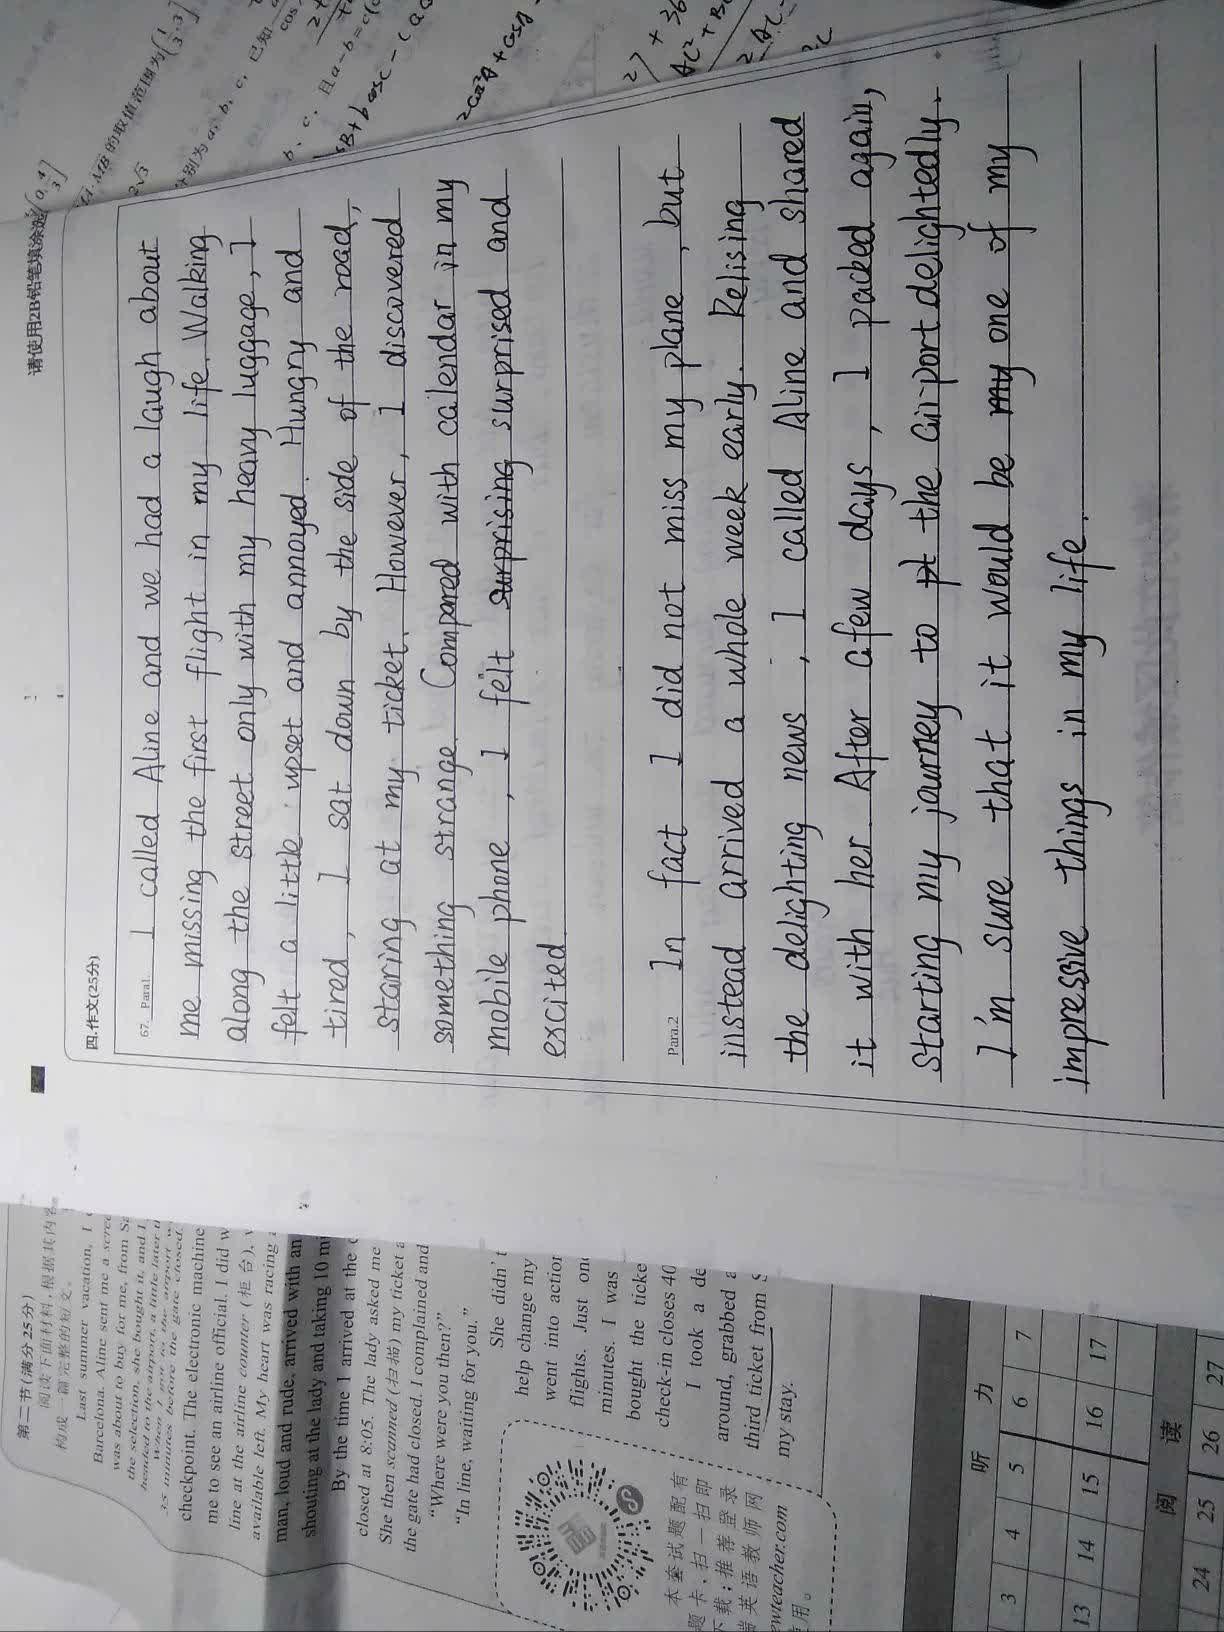 请使用2B铅笔填涂
四.作文(25分)
67. Para1. I called Aline and we had a laugh about
me missing the first flight in my life. Walking
along the street only with my heavy luggage, I
felt a little upset and annoyed. Hungry and
tired, I sat down by the side of the road,
staring at my ticket. However, I discovered
something strange. Compared with calendar in my
mobile phone, I felt surprising surprised and
excited.
Para.2 In fact I did not miss my plane, but
instead arrived a whole week early. Relising
the delighting news, I called Aline and shared
it with her. After a few days, I packed again,
Starting my jarney to the airport delightedly.
I'm sure that it would be my one of my
impressive things in my life.
第二节(满分25分)
阅读下面材料,根据其内容
构成一篇完整的短文。
Last summer vacation, I
Barcelona. Aline sent me a scree
was about to buy for me, from Sa
the selection, she bought it, and I
headed to the airport, a little later
When I got to the airport
35 minutes before the gate closed.
checkpoint. The electronic machine
me to see an airline official. I did w
line at the airline counter (柜台), w
available left. My heart was racing
man, loud and rude, arrived with an
shouting at the lady and taking 10 m
By the time I arrived at the c
closed at 8:05. The lady asked me
She then scanned (扫描) my ticket a
the gate had closed. I complained and
"Where were you then?"
"In line, waiting for you."
She didn't
help change my
went into action
flights. Just one
minutes. I was
bought the ticke
check-in closes 40
I took a de
around, grabbed a
third ticket from S
my stay.
本套试题配有
题卡,扫一扫即
下载;推荐登录
端英语教师网
ewteacher.com
使用。
听 力
3 4 5 6 7
13 14 15 16 17
阅 读
24 25 26 27